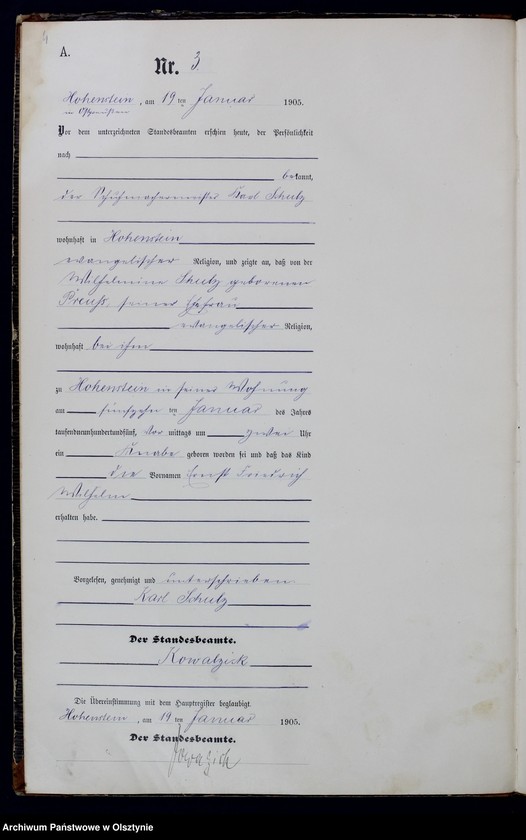 4
A.
Nr. 3.
Hohenstein, am 19 ten Januar 1905.
in Ostpreußen
Vor dem unterzeichneten Standesbeamten erschien heute, der Persönlichkeit
nach
bekannt,
der Schuhmachermeister Karl Schulz
wohnhaft in Hohenstein
evangelischer Religion, und zeigte an, daß von der
Wilhelmine Schulz geborenen
Preuß, seiner Ehefrau
evangelischer Religion,
wohnhaft bei ihm
zu Hohenstein in seiner Wohnung
am fünfzehn ten Januar des Jahres
tausendneunhundertundfünf, Vor mittags um zwei Uhr
ein Knabe geboren worden sei und daß das Kind
die Vornamen Ernst Friedrich
Wilhelm
erhalten habe.
Vorgelesen, genehmigt und unterschrieben
Karl Schulz
Der Standesbeamte.
Kowalzick
Die Übereinstimmung mit dem Hauptregister beglaubigt.
Hohenstein, am 19 ten Januar 1905.
Der Standesbeamte.
Kowalzick
Archiwum Państwowe w Olsztynie